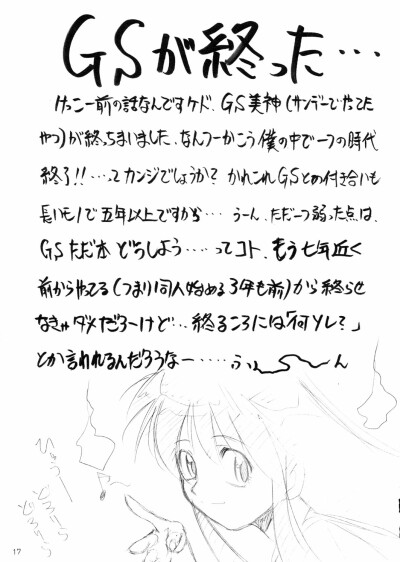 GSが終った…
けっこー前の話なんですケド、GS美神(サンデーでやってた
やつ)が終っちまいました、なんつーかこう僕の中で一つの時代
終了!!…ってカンジでしょうか?かれこれGSとの付き合いも
長いモノで五年以上ですから…うーん、ただ一つ弱った点は、
GSただ本どうしよう……ってコト、もう七年近く
前からやってる(つまり同人始める3年も前)から終らせ
なきゃダメだろーけど…終るころには「何ソレ?」
とか言われるんだろうなー……ふぅ〜ん
ひゅうー
どろりろ
どろりろ
17